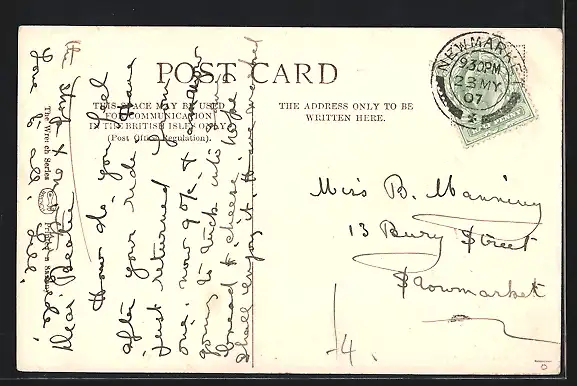 POST CARD
THIS SPACE MAY BE USED
FOR COMMUNICATION
IN THE BRITISH ISLES ONLY
(Post Office Regulation).
THE ADDRESS ONLY TO BE
WRITTEN HERE.
NEWMARKET
9.30PM
23 MY
07
Miss B. Manning
13 Bury Street
Stowmarket
14.
The Wrench Series
Dear Beattie
How do you feel
after your ride. Have
just returned from
one, now going to tuck into
bread & cheese. hope
shall enjoy it.
Love to all,